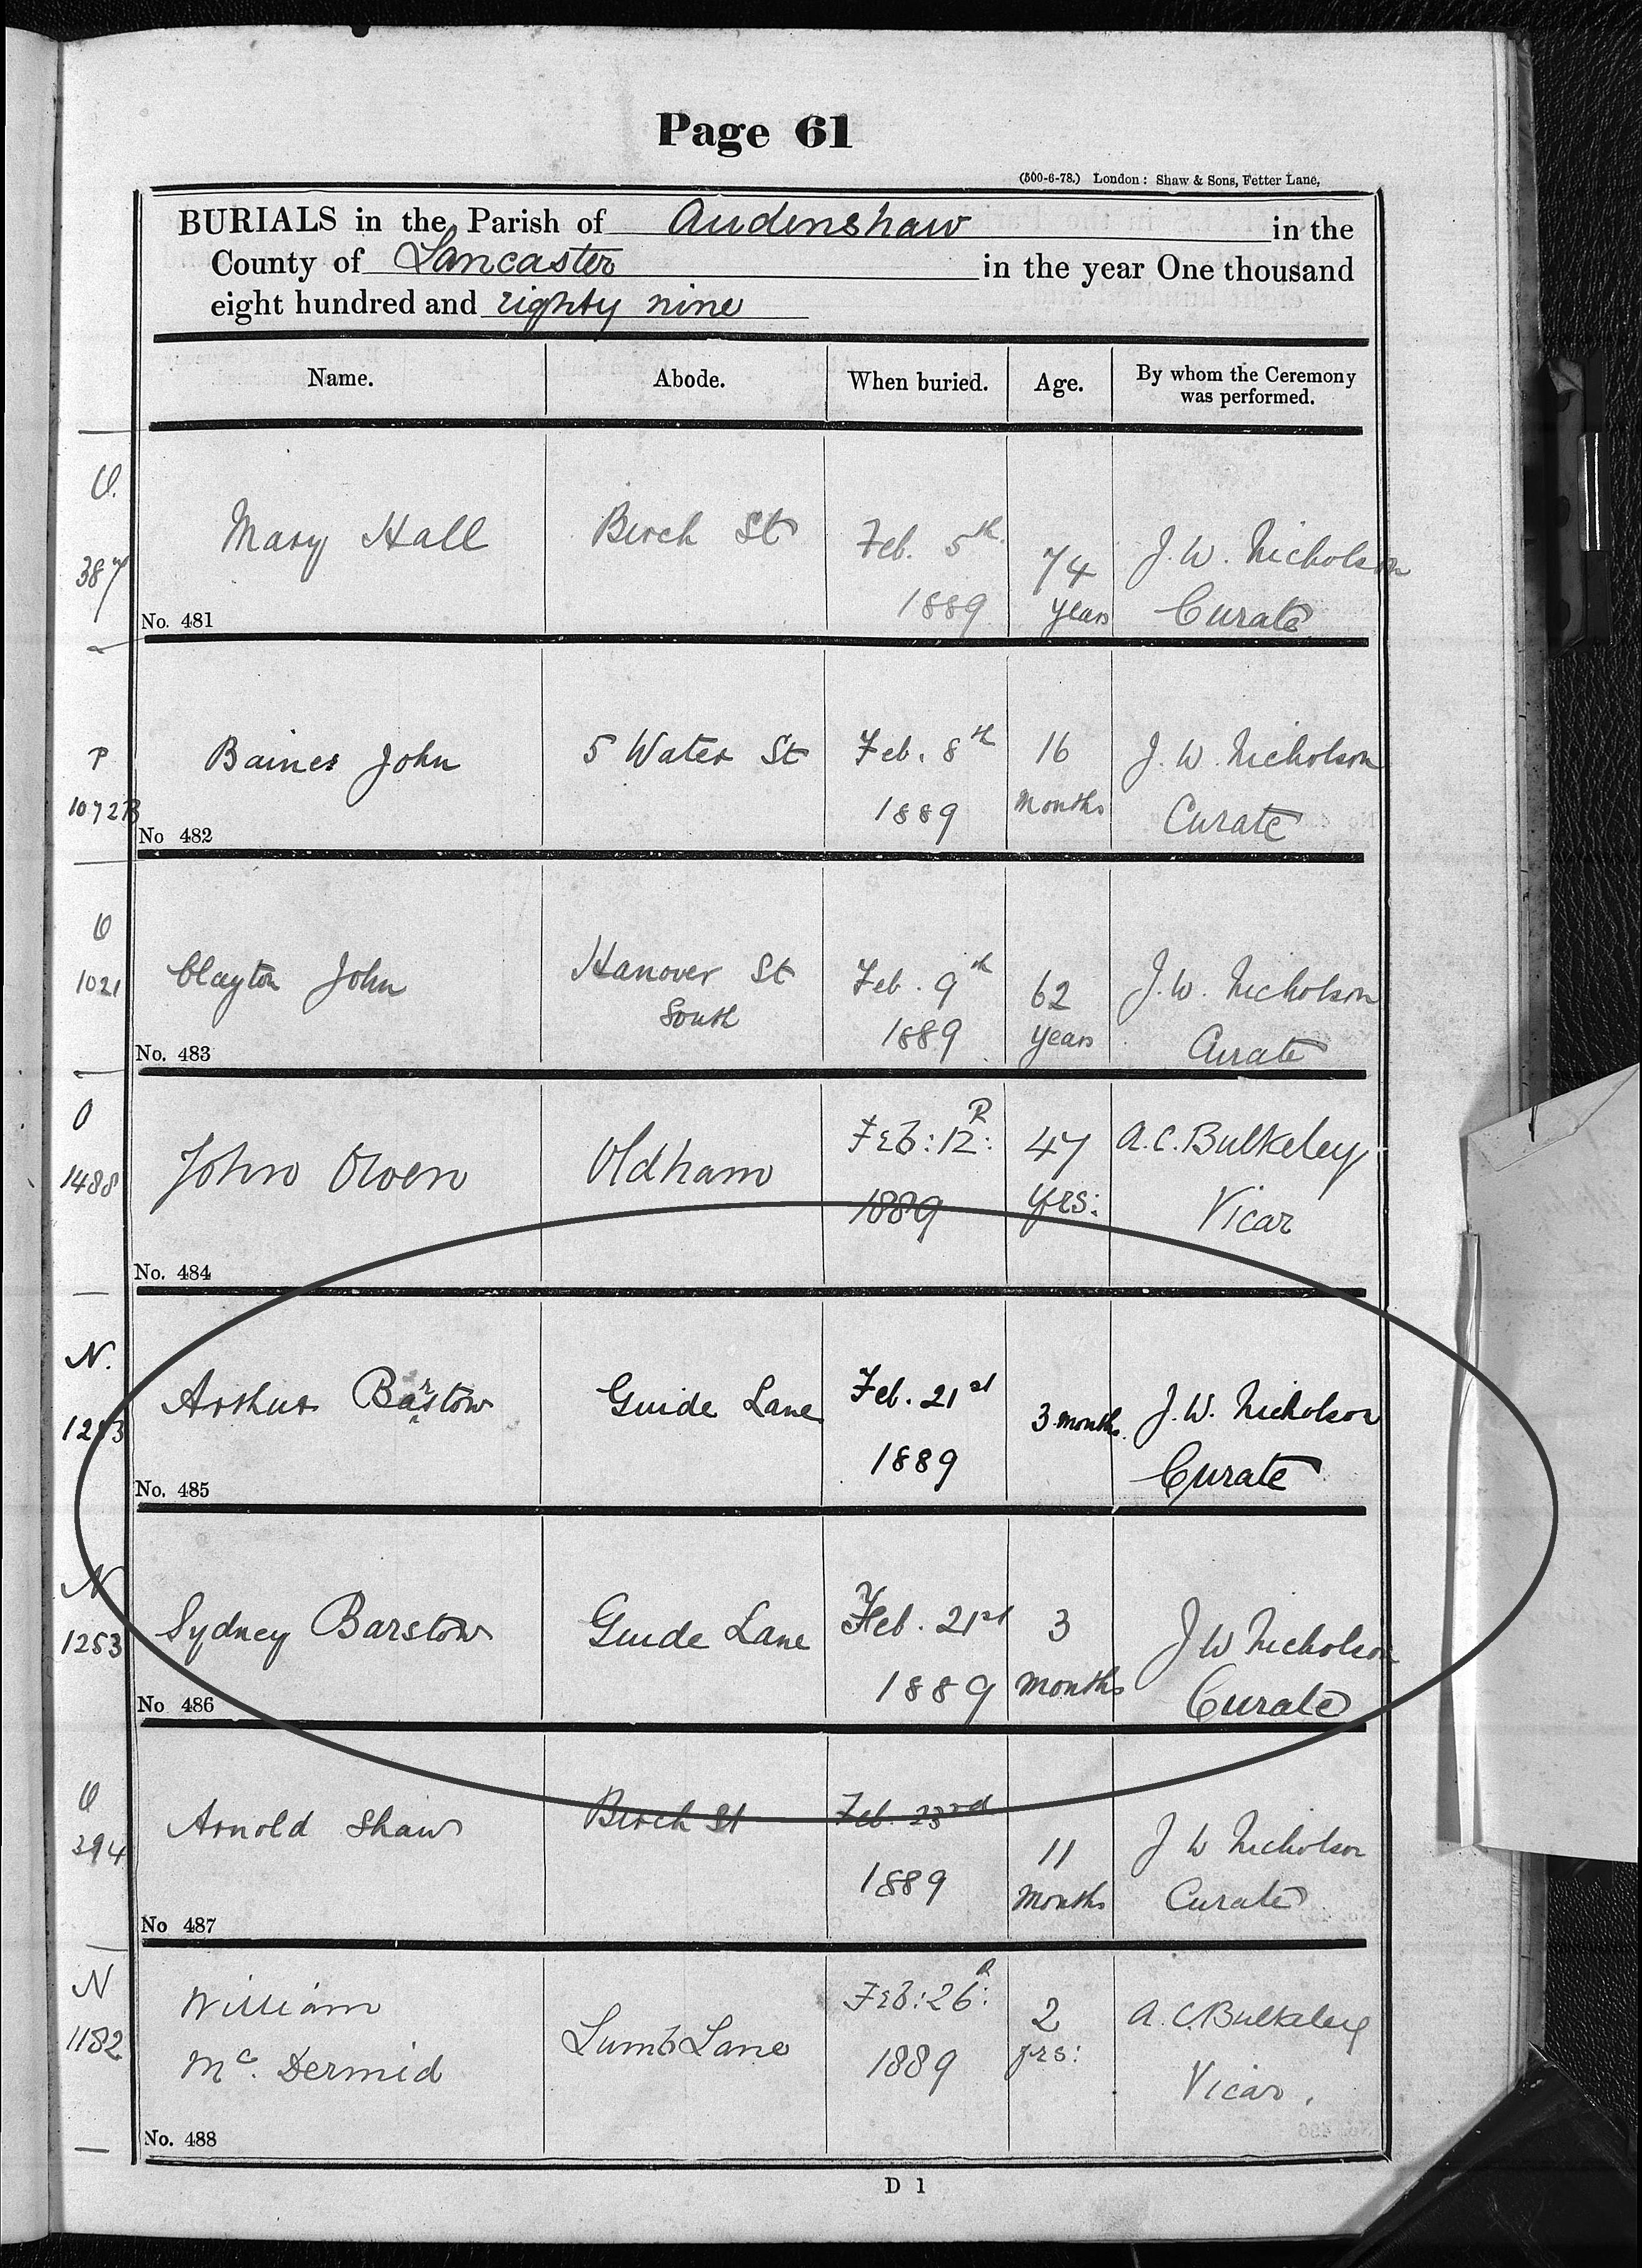 Page 61
(500-6-78.) London: Shaw & Sons, Fetter Lane,
BURIALS in the Parish of Audenshaw in the
County of Lancaster in the year One thousand
eight hundred and eighty nine
Name. Abode. When buried. Age. By whom the Ceremony
was performed.
O.
387
Mary Hall Birch St Feb. 5th 74 J. W. Nicholson
1889 years Curate
No. 481
P
1072B
Baines John 5 Water St Feb. 8th 16 J. W. Nicholson
1889 months Curate
No 482
O
1021
Clayton John Hanover St Feb. 9th 62 J. W. Nicholson
South 1889 years Curate
No. 483
O
1488
John Owen Oldham Feb: 12: 47 A. C. Bulkeley
1889 yrs: Vicar
No. 484
N.
1253
Arthur Barstow Guide Lane Feb. 21st 3 months. J. W. Nicholson
1889 Curate
No. 485
N
1253
Sydney Barstow Guide Lane Feb. 21st 3 J W Nicholson
1889 months Curate
No 486
O
394
Arnold Shaw Birch St Feb. 23rd 11 J W Nicholson
1889 months Curate
No 487
N
1182
William Feb: 26: 2 A. C. Bulkeley
Mc. Dermid Lumb Lane 1889 yrs: Vicar.
No. 488
D 1